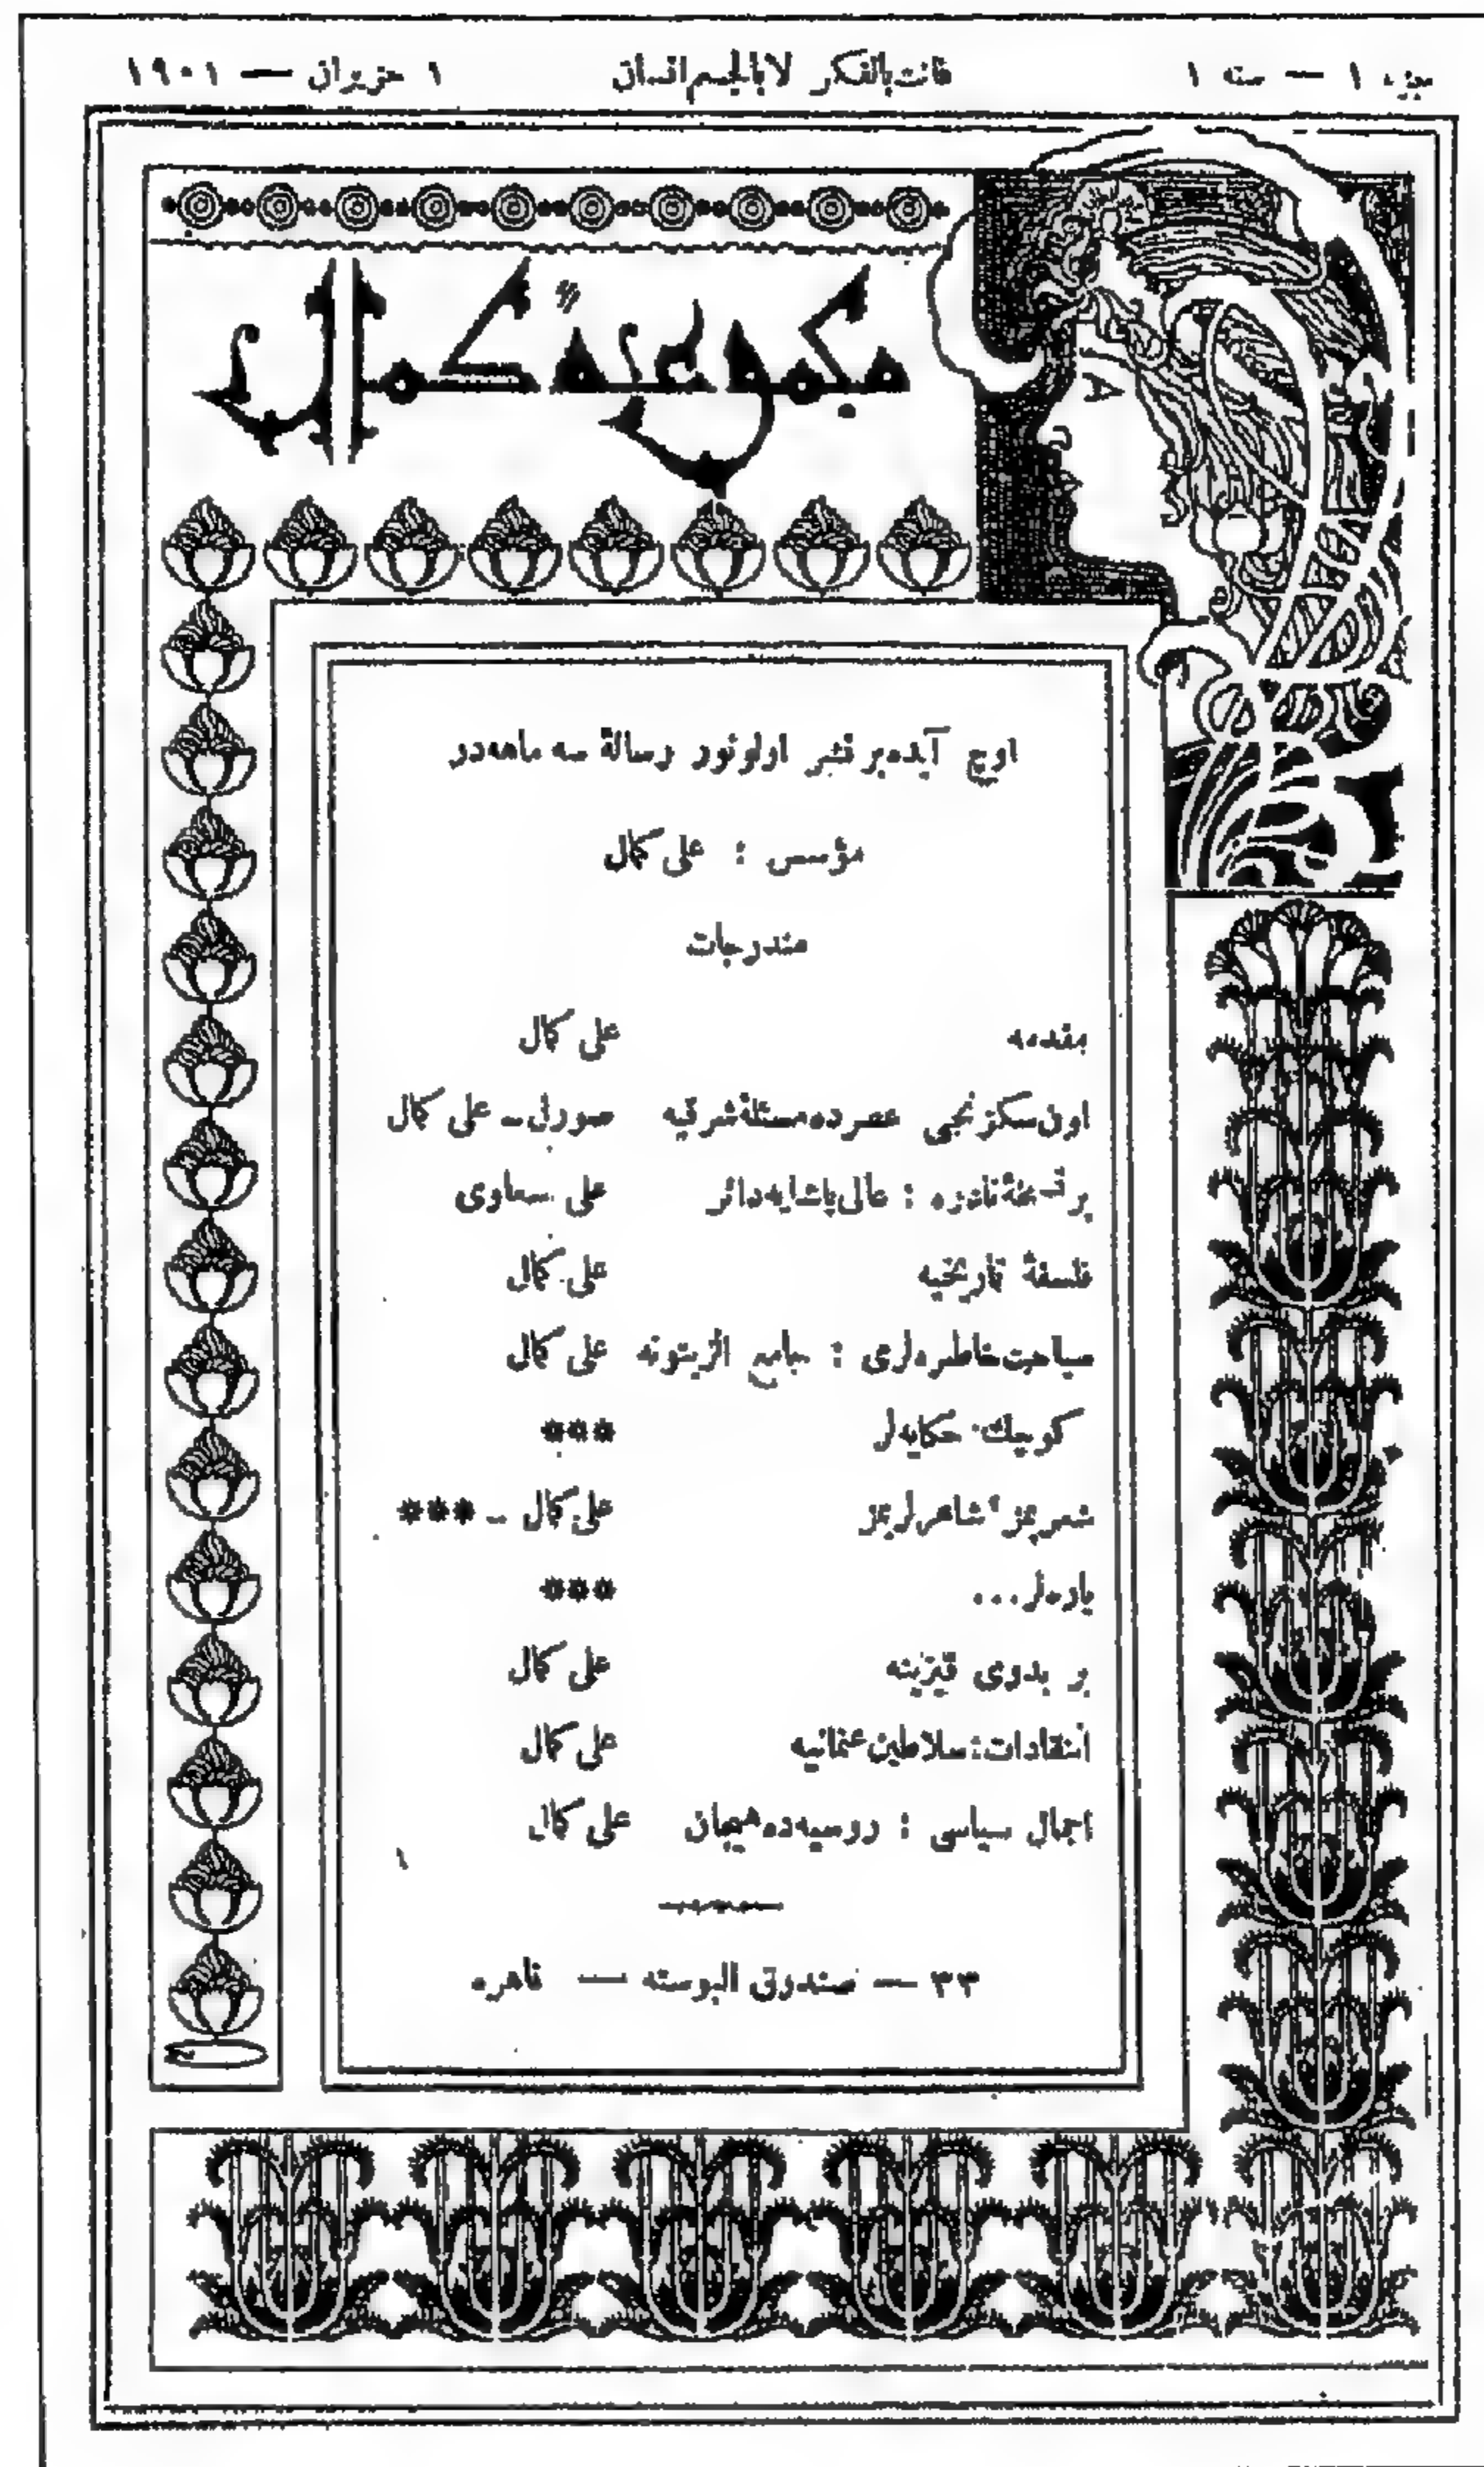 جزء ١ — سنه ١ فانت بالفكر لا بالجسم انسان ١ حزیران — ١٩٠١
مجموعهٔ كمال
اوچ آیده‌بر نشر اولونور رسالهٔ سه ماهه‌در
مؤسس : علی كمال
مندرجات
مقدمه علی كمال
اون‌سكزنجی عصرده‌مسئلهٔ‌شرقیه سورل ـ علی كمال
بر نسخهٔ‌نادره : عالی‌پاشایه‌دائر علی سعاوی
فلسفهٔ تاریخیه علی كمال
سیاحت‌خاطره‌لری : جامع الزیتونه علی كمال
كوچك حكایه‌لر ***
شعریمز، شاعرلریمز علی كمال ـ ***
یاره‌لر... ***
بر بدوی قیزینه علی كمال
انتقادات: سلاطین‌عثمانیه علی كمال
اجمال سیاسی : روسیه‌ده‌هیجان علی كمال
٣٣ — صندوق البوسته — قاهره